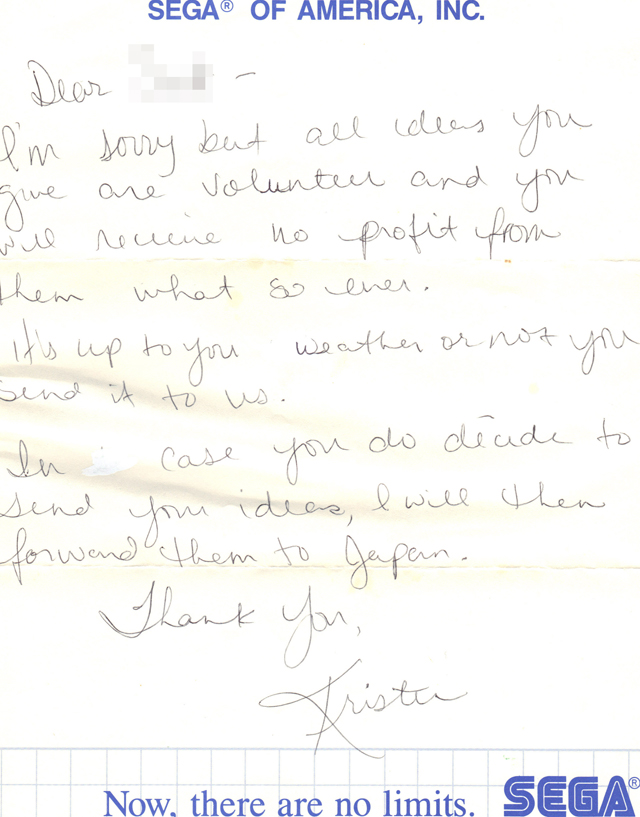 SEGA® OF AMERICA, INC.
Dear –
I'm sorry but all ideas you
give are volunteer and you
will receive no profit from
them what so ever.
It's up to you weather or not you
send it to us.
In case you do decide to
send your ideas, I will then
forward them to Japan.
Thank You,
Now, there are no limits. SEGA®